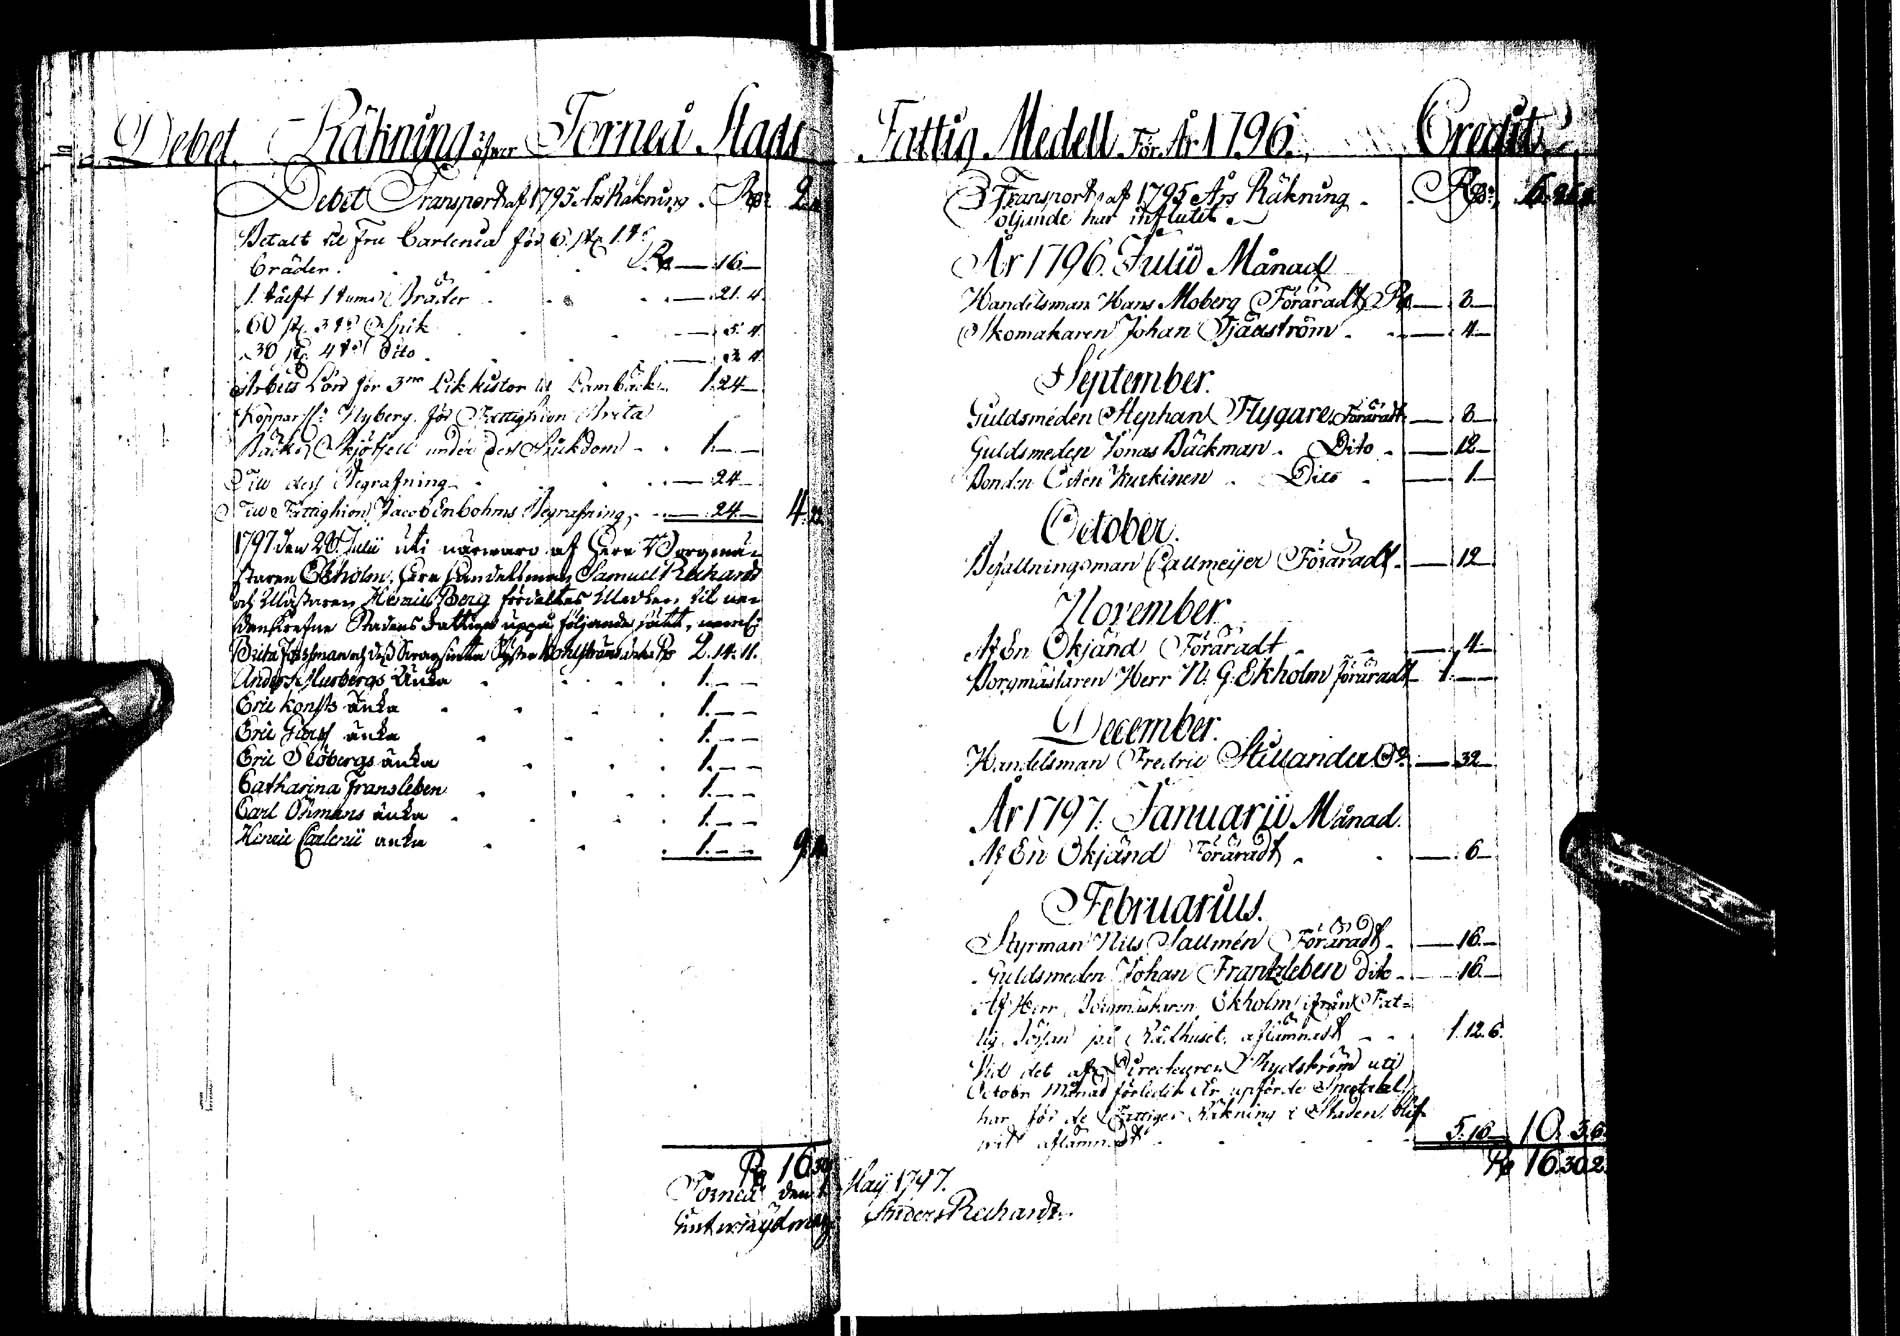 Debet. Räkning öfwer Torneå Stads
Debet Transport af 1795 Års Räkning. Rdr 2
Betalt til Fru Carlenia för 6. st. 1. t.
Bräder. R 16
1. tålft 1 tums Bräder 21. 4.
60 st. 3 t. Spik 5. 4.
30 st. 4 t. Dito 4.
Arbets Lön för 3ne Likkistor til Lambäck 1. 24
Koppar Sl. Nyberg. för Fattighion Brita
Bäck skjötsell under des Siukdom 1.
Til des Begrafning 24
Til Fattighion Jacob Enbohms Begrafning 24 4. 22
1797 den 28. Julii uti närwaro af Herr Borgmä-
staren Ekholm, Herr Handelsman Samuel Rechardt
och Mästaren Henric Berg fördeltes Medlen til ne-
denskrefne Stadens Fattiga uppå följande sätt, neml:
Brita Forssman och des Syster enka R 2. 14. 11.
Anders Murbergs Änka 1.
Eric Konsts änka 1.
Eric änka 1.
Eric Sköbergs änka 1.
Catharina Fransleben 1.
Carl Öhmans änka 1.
Henric Carlenii anka 1. 9.
R 16. 30
Torneå den
Fattig Medell För År 1796. Credit
Transport af 1795 Års Räkning Rdr 6. 26. 8
Följande har influtit
År 1796. Julii Månad
Handelsman Hans Moberg Föräradt R 8
Skomakaren Johan Tjäderström 4
September.
Guldsmeden Stephan Flygare Föräradt 8
Guldsmeden Jonas Bäckman Dito 12
Bonden Kurkinen Dito 1
October.
Befallningsman Callmeijer Föräradt 12
November.
Af En Okjänd Föräradt 4
Borgmästaren Herr N: G. Ekholm föräradt 1.
December.
Handelsman Fredric Stillander Do 32
År 1797. Januarii Månad.
Af En Okjänd Föräradt 6
Februarius.
Styrman Nils Sallmén Föräradt 16
Guldsmeden Johan Frantzleben dito 16
Af Herr Borgmästaren Ekholm ifrån Fat-
tig Bössan på Rådhuset, aflämnadt 1. 12. 6.
Vid det af Directeuren Rydström uti
Octobr Månad förledit År upförde Spectakel
har för de Fattigas Räkning i Staden blif-
wit aflämnadt 5. 16 10. 3. 6
R 16. 30. 2
Maij 1797.
Anders Rechardt.